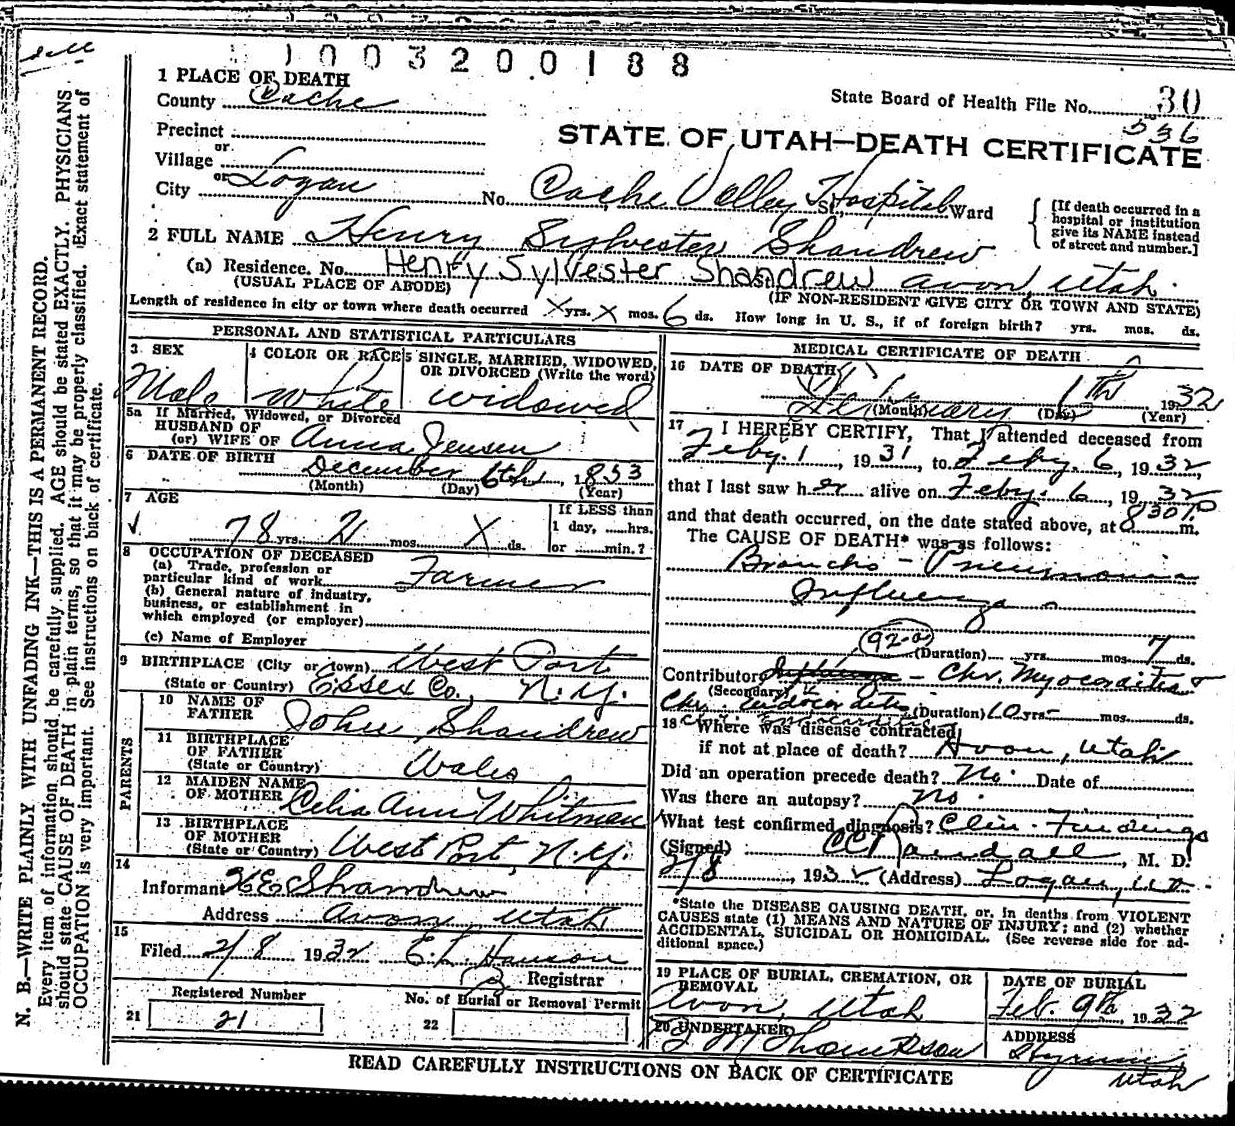 1003200188
1 PLACE OF DEATH
County Cache
State Board of Health File No. 30
536
Precinct
or
Village
or
City Logan
STATE OF UTAH—DEATH CERTIFICATE
No. Cache Valley Hospital St., Ward
[If death occurred in a hospital or institution give its NAME instead of street and number.]
2 FULL NAME Henry Sylvester Shandrew
(a) Residence. No. Henry Sylvester Shandrew Avon, Utah.
(USUAL PLACE OF ABODE) (IF NON-RESIDENT GIVE CITY OR TOWN AND STATE)
Length of residence in city or town where death occurred X yrs. X mos. 6 ds. How long in U. S., if of foreign birth? yrs. mos. ds.
PERSONAL AND STATISTICAL PARTICULARS
3 SEX
Male
4 COLOR OR RACE
White
5 SINGLE, MARRIED, WIDOWED, OR DIVORCED (Write the word)
widowed
5a If Married, Widowed, or Divorced
HUSBAND OF
(or) WIFE OF Anna Jensen
6 DATE OF BIRTH
December 6th, 1853
(Month) (Day) (Year)
7 AGE
78 yrs. 2 mos. X ds.
If LESS than
1 day, hrs.
or min.?
8 OCCUPATION OF DECEASED
(a) Trade, profession or
particular kind of work Farmer
(b) General nature of industry,
business, or establishment in
which employed (or employer)
(c) Name of Employer
9 BIRTHPLACE (City or town) West Port
(State or Country) Essex Co., N.Y.
PARENTS
10 NAME OF
FATHER John Shandrew
11 BIRTHPLACE
OF FATHER
(State or Country) Wales
12 MAIDEN NAME
OF MOTHER Celia Ann Whitman
13 BIRTHPLACE
OF MOTHER
(State or Country) West Port, N.Y.
14
Informant H E Shandrew
Address Avon, Utah
15
Filed 2/8 1932 E. L. Hanson
Registrar
Registered Number
21 21
No. of Burial or Removal Permit
22
MEDICAL CERTIFICATE OF DEATH
16 DATE OF DEATH
1932
(Month) (Day) (Year)
17 I HEREBY CERTIFY, That I attended deceased from
Feby. 1, 1931, to Feby. 6, 1932
that I last saw her alive on Feby. 6, 1932
and that death occurred, on the date stated above, at 830 P m.
The CAUSE OF DEATH* was as follows:
Broncho-Pneumonia
Influenza
(Duration) yrs. mos. 7 ds.
Contributory Influenza - Chr. Myocarditis &
(Secondary)
Chr. Endocarditis (Duration) 10 yrs. mos. ds.
18 Where was disease contracted
if not at place of death? Avon, Utah
Did an operation precede death? No. Date of
Was there an autopsy? No.
What test confirmed diagnosis? Clin. Findings
(Signed) C C Randall, M. D.
2/8, 1932 (Address) Logan, Ut.
*State the DISEASE CAUSING DEATH, or, in deaths from VIOLENT
CAUSES state (1) MEANS AND NATURE OF INJURY; and (2) whether
ACCIDENTAL, SUICIDAL OR HOMICIDAL. (See reverse side for ad-
ditional space.)
19 PLACE OF BURIAL, CREMATION, OR
REMOVAL
Avon, Utah
DATE OF BURIAL
Feb. 9th, 1932
20 UNDERTAKER
ADDRESS
Hyrum
Utah
READ CAREFULLY INSTRUCTIONS ON BACK OF CERTIFICATE
N. B.—WRITE PLAINLY WITH UNFADING INK—THIS IS A PERMANENT RECORD.
Every item of information should be carefully supplied. AGE should be stated EXACTLY. PHYSICIANS
should state CAUSE OF DEATH in plain terms, so that it may be properly classified. Exact statement of
OCCUPATION is very important. See instructions on back of certificate.